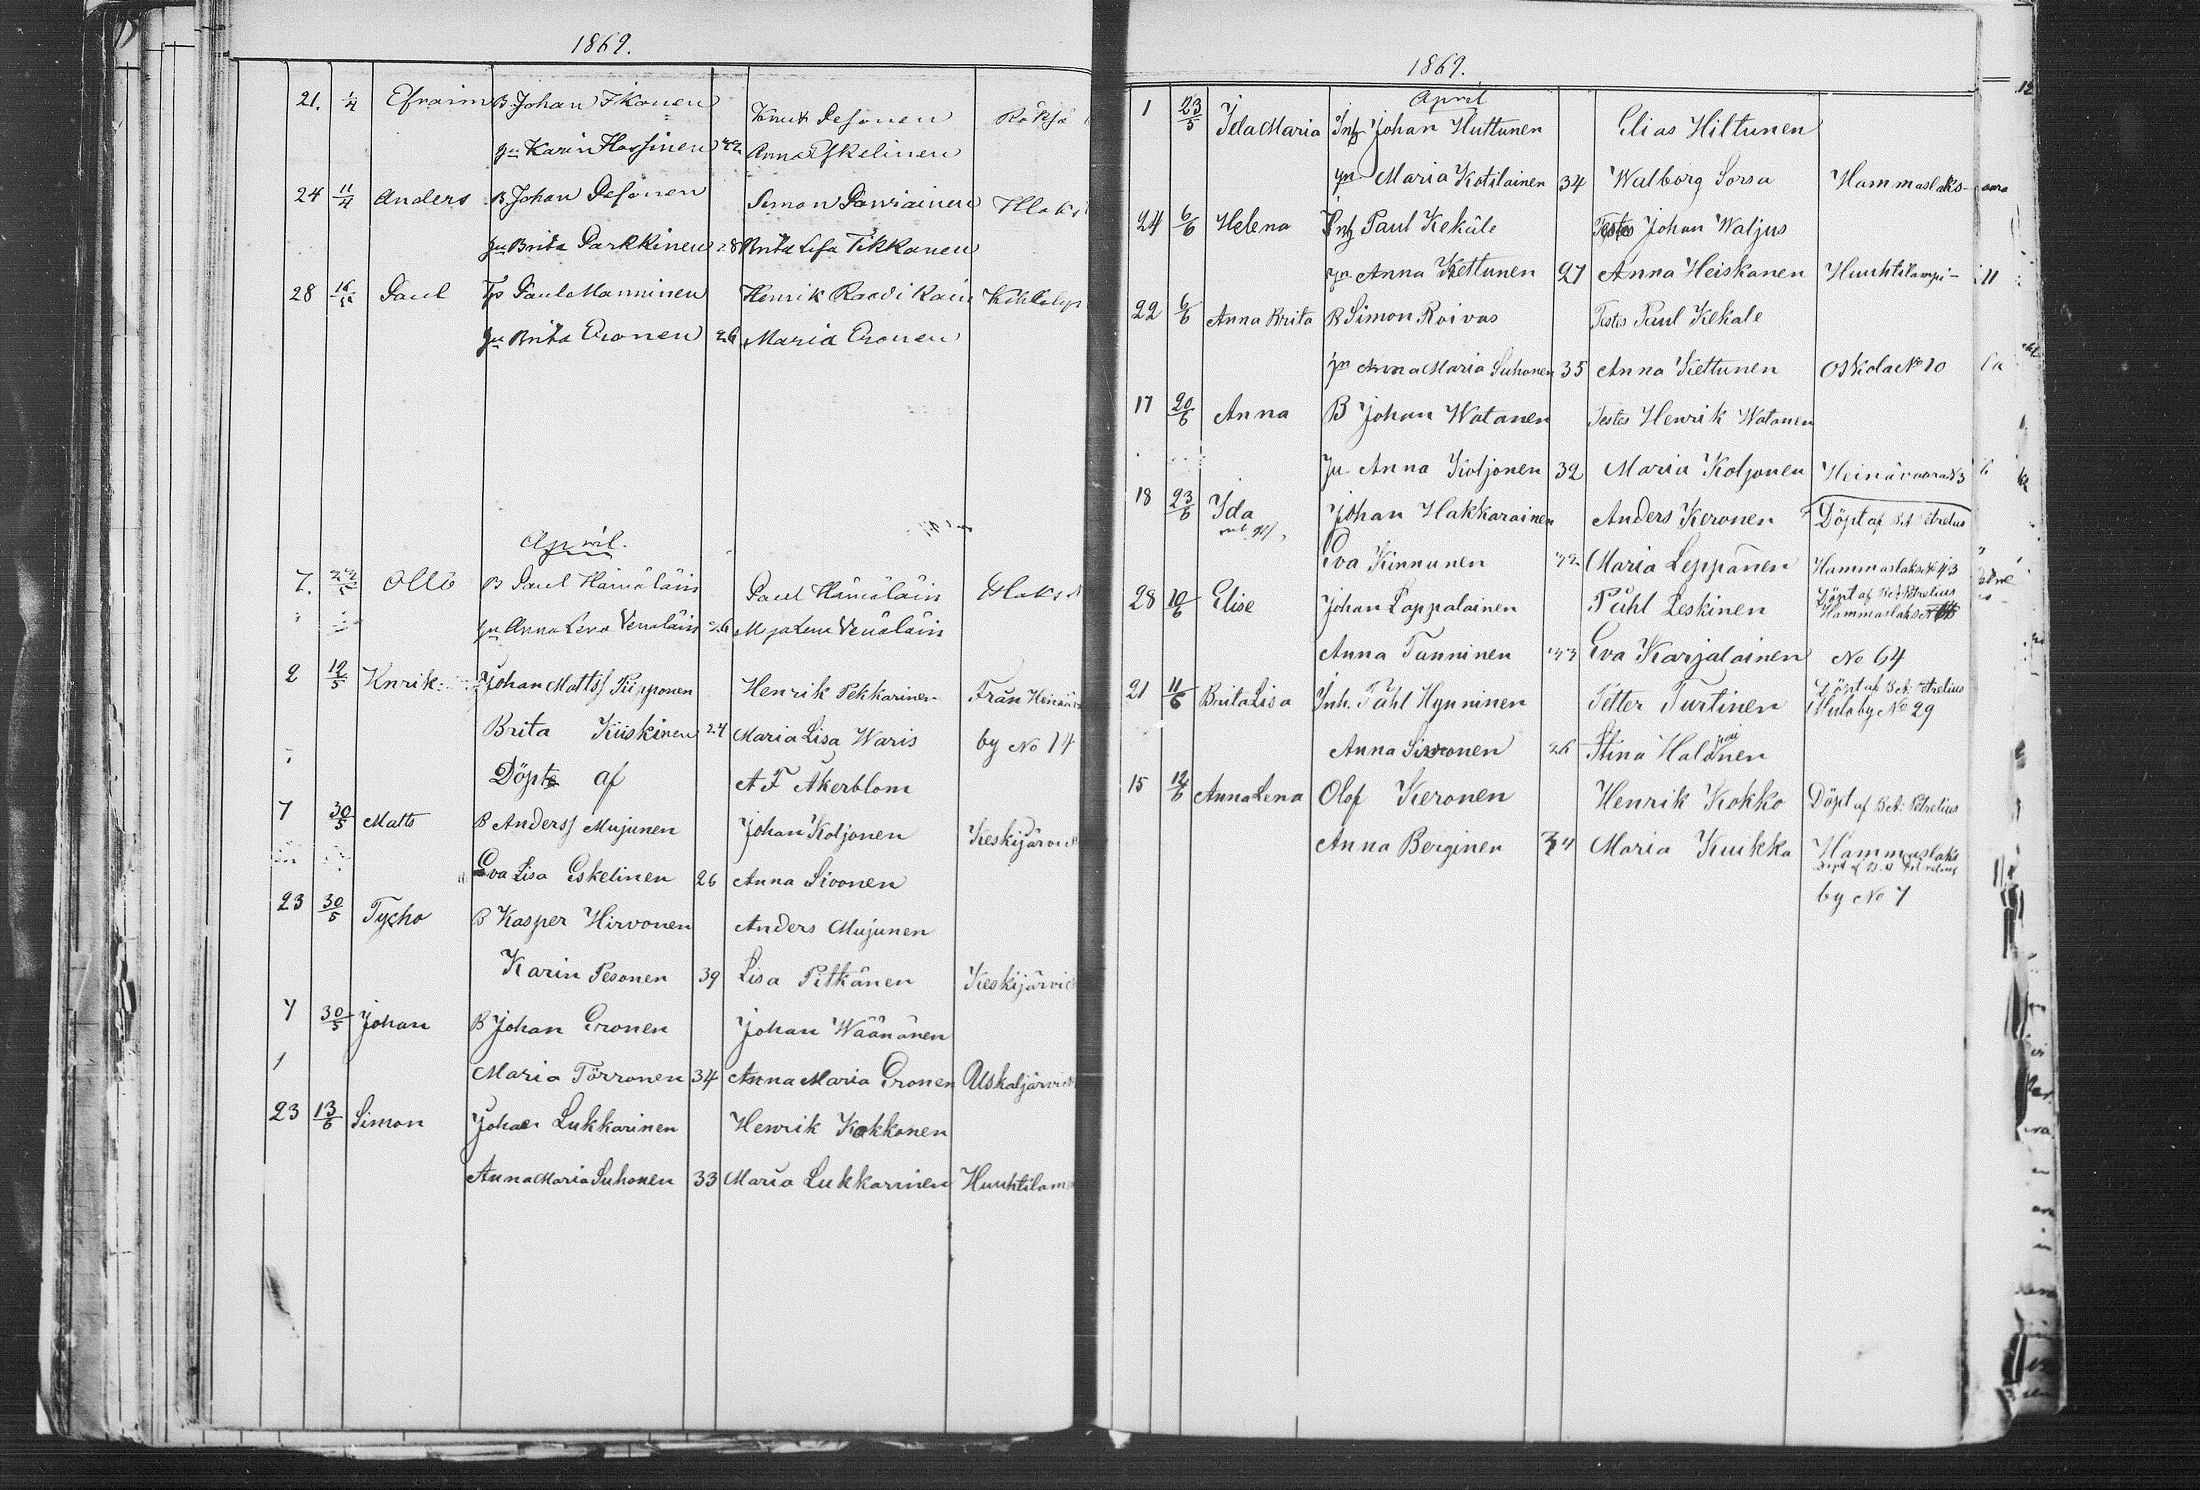 1869.
21. 1/4 Efraim B Johan Ikonen Knut Pesonen
hu Karin Hassinen 42 Anna Eskelinen
24 11/4 Anders B Johan Pesonen Simon Parviainen
hu Brita Parkkinen 28 Brita Lisa Tikkanen
28 Paul Paul Manninen Henrik
hu Brita Eronen 26 Maria Eronen
April.
7. Olli B Paul Hämäläin Paul Hämäläin
hu Anna Lena Venäläin 26 Lena Venäläin
2 12/5 Henrik Johan Mattsf Piipponen Henrik Pekkarinen Från
Brita Kiiskinen 24 Maria Lisa Waris by No 14
Döpte af A F Åkerblom
7 30/5 Matts B Andersf Mujunen Johan Koljonen Keskijärvi
Eva Lisa Eskelinen 26 Anna Sivonen
23 30/5 Tycho B Kasper Hirvonen Anders Mujunen
Karin Pesonen 39 Lisa Pitkänen Keskijärvi
7 30/5 Johan B Johan Eronen Johan Wäänänen
Maria Törronen 34 Anna Maria Eronen Uskaljärvi
23 13/6 Simon Johan Lukkarinen Henrik Kokkonen
Anna Maria Suhonen 33 Maria Lukkarinen Huuhtilam
1869.
April
1 23/5 Ida Maria Inh Johan Huttunen Elias Hiltunen
hu Maria Kotilainen 34 Walborg Sorsa Hammaslaks-
24 6/6 Helena Inh Paul Kekäle Testes Johan Waljus
hu Anna Kettunen 27 Anna Heiskanen Huuhtilampi-
22 6/6 Anna Brita B Simon Roivas Testes Paul Kekale
hu Anna Maria Suhonen 35 Anna Kettunen Oskola No 10
17 20/6 Anna B Johan Watanen Testes Henrik Watanen
hu Anna Koljonen 32 Maria Koljonen Heinävaara 3
18 23/6 Ida Johan Hakkarainen Anders Keronen Döpt af Bet Petrelius
Eva Kinnunen 32 Maria Leppänen Hammaslaks No 43
28 10/6 Elise Johan Lappalainen Påhl Leskinen Döpt af Bet Petrelius
Hammaslaks
Anna Tanninen 33 Eva Karjalainen No 64
21 11/6 Brita Lisa Inh. Påhl Hynninen Petter Turtinen Döpt af Bet. Petrelius
Mulo by No 29
Anna Sivonen 26 Stina Halonen
15 12/6 Anna Lena Olof Keronen Henrik Kokko Döpt af Bet. Petrelius
Anna Berginen 34 Maria Kuikka Hammaslaks
by No 7